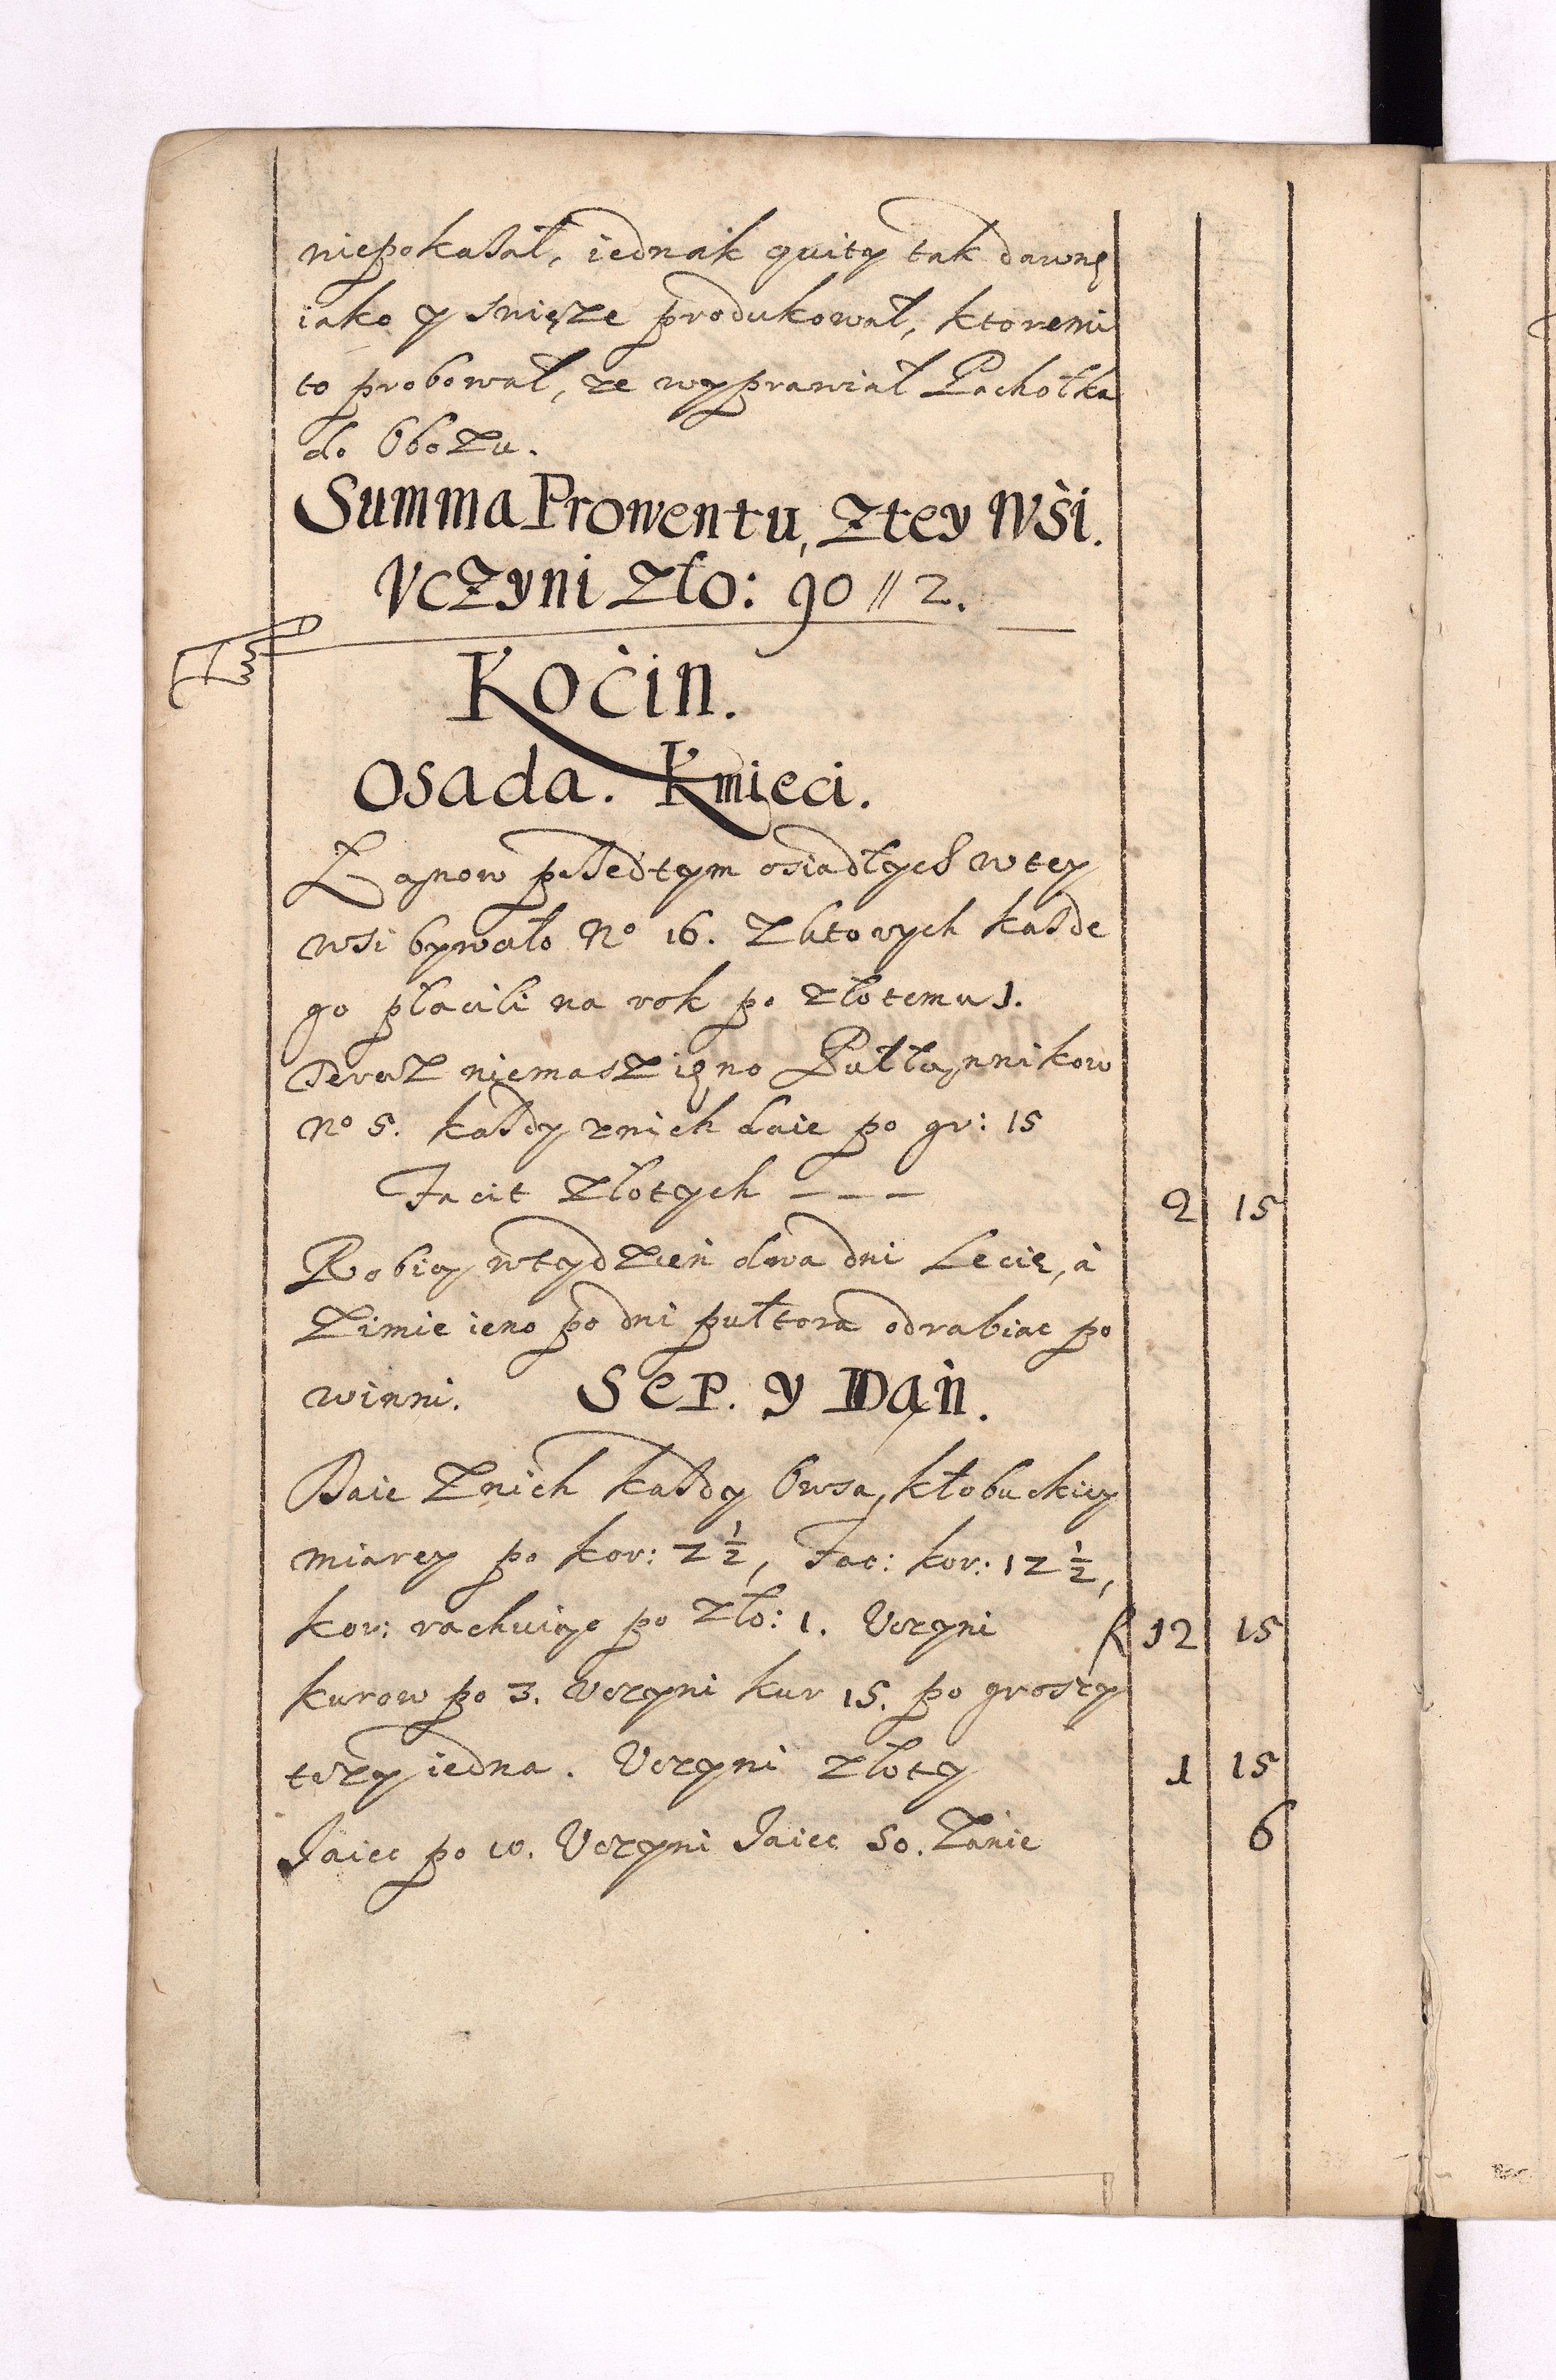 niepokazał, iednak quity tak dawnę
iako y snięze produkował, ktoremi
to probował, ze wyprawiał Pachołka
do Obozu.
Summa Prowentu, z tey Wśi.
Vczyni zło: 90 // 2.
Koćin.
Osada. Kmieci.
Łanow przedtym osiadłych w tey
wsi bywało No 16. z ktorych kazde
go płacili na rok po złotemu 1.
Teraz niemasz ięno Pułłannikow
No 5. kazdy znich daie po gr: 15
Facit złotych - - - 2 15
Robią w tydzień dwa dni Lecie, à
Zimie ieno po dni pułtora odrabiac po
winni. Sep. y Dań.
Daie znich kazdy Owsa, kłobuckiey
miarey po kor: 2 1/2, Fac: kor: 12 1/2,
kor: rachuiąc po zło: 1. Vczyni f 12 15
kurow po 3. Vczyni kur 15. po groszy
trzy iedna. Vczyni złoty 1 15
Jaiec po 10. Vczyni Jaiec 50. Zanie 6